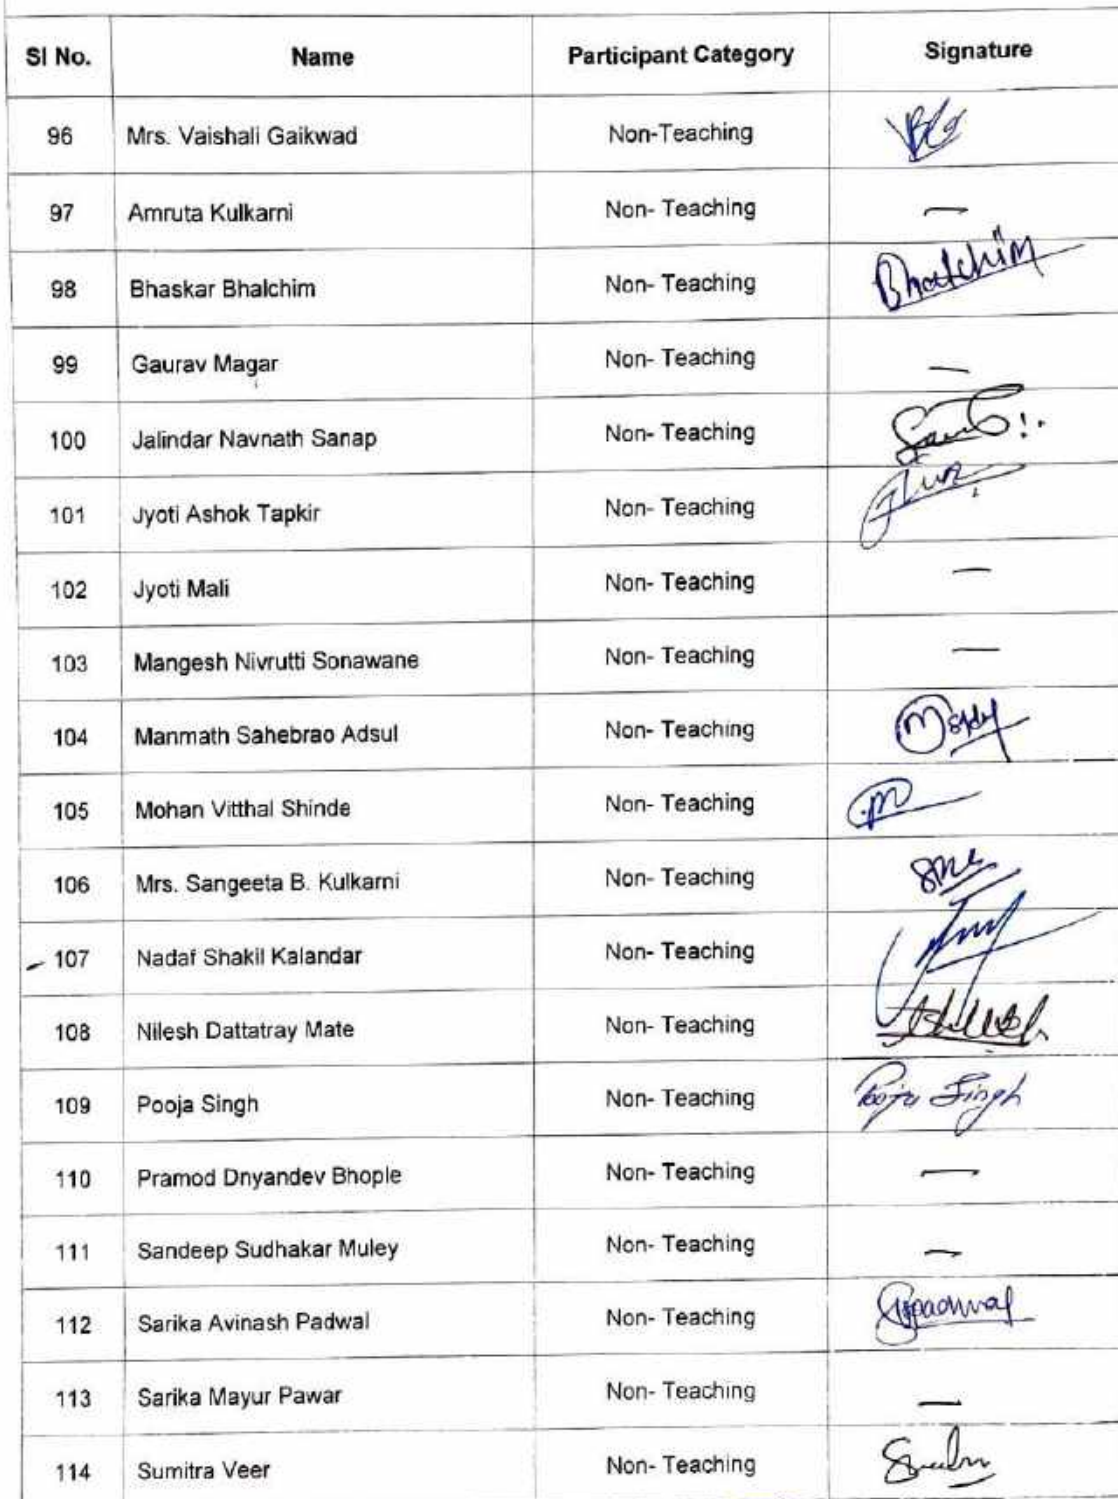 Sl No. Name Participant Category Signature
96 Mrs. Vaishali Gaikwad Non-Teaching
97 Amruta Kulkarni Non- Teaching —
98 Bhaskar Bhalchim Non- Teaching Bhalchim
99 Gaurav Magar Non- Teaching —
100 Jalindar Navnath Sanap Non- Teaching
101 Jyoti Ashok Tapkir Non- Teaching
102 Jyoti Mali Non- Teaching —
103 Mangesh Nivrutti Sonawane Non- Teaching —
104 Manmath Sahebrao Adsul Non- Teaching
105 Mohan Vitthal Shinde Non- Teaching
106 Mrs. Sangeeta B. Kulkarni Non- Teaching
107 Nadaf Shakil Kalandar Non- Teaching
108 Nilesh Dattatray Mate Non- Teaching
109 Pooja Singh Non- Teaching Pooja Singh
110 Pramod Dnyandev Bhople Non- Teaching —
111 Sandeep Sudhakar Muley Non- Teaching —
112 Sarika Avinash Padwal Non- Teaching
113 Sarika Mayur Pawar Non- Teaching —
114 Sumitra Veer Non- Teaching